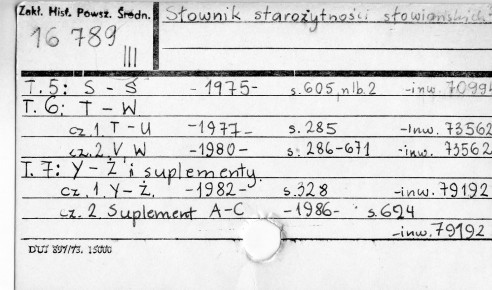 Zakł. Hist. Powsz. Średn.
Słownik starożytności słowiańskich.
16 789
III
T. 5: S - Ś -1975- s. 605, nlb. 2 -inw. 70994
T. 6: T - W
cz. 1. T - U -1977- s. 285 -inw. 73562
cz. 2. V W -1980- s. 286-671 -inw. 73562
T. 7: Y - Ż i suplementy.
cz. 1. Y - Ż. -1982- s. 328 -inw. 79192
cz. 2. Suplement A-C -1986- s. 624
-inw. 79192